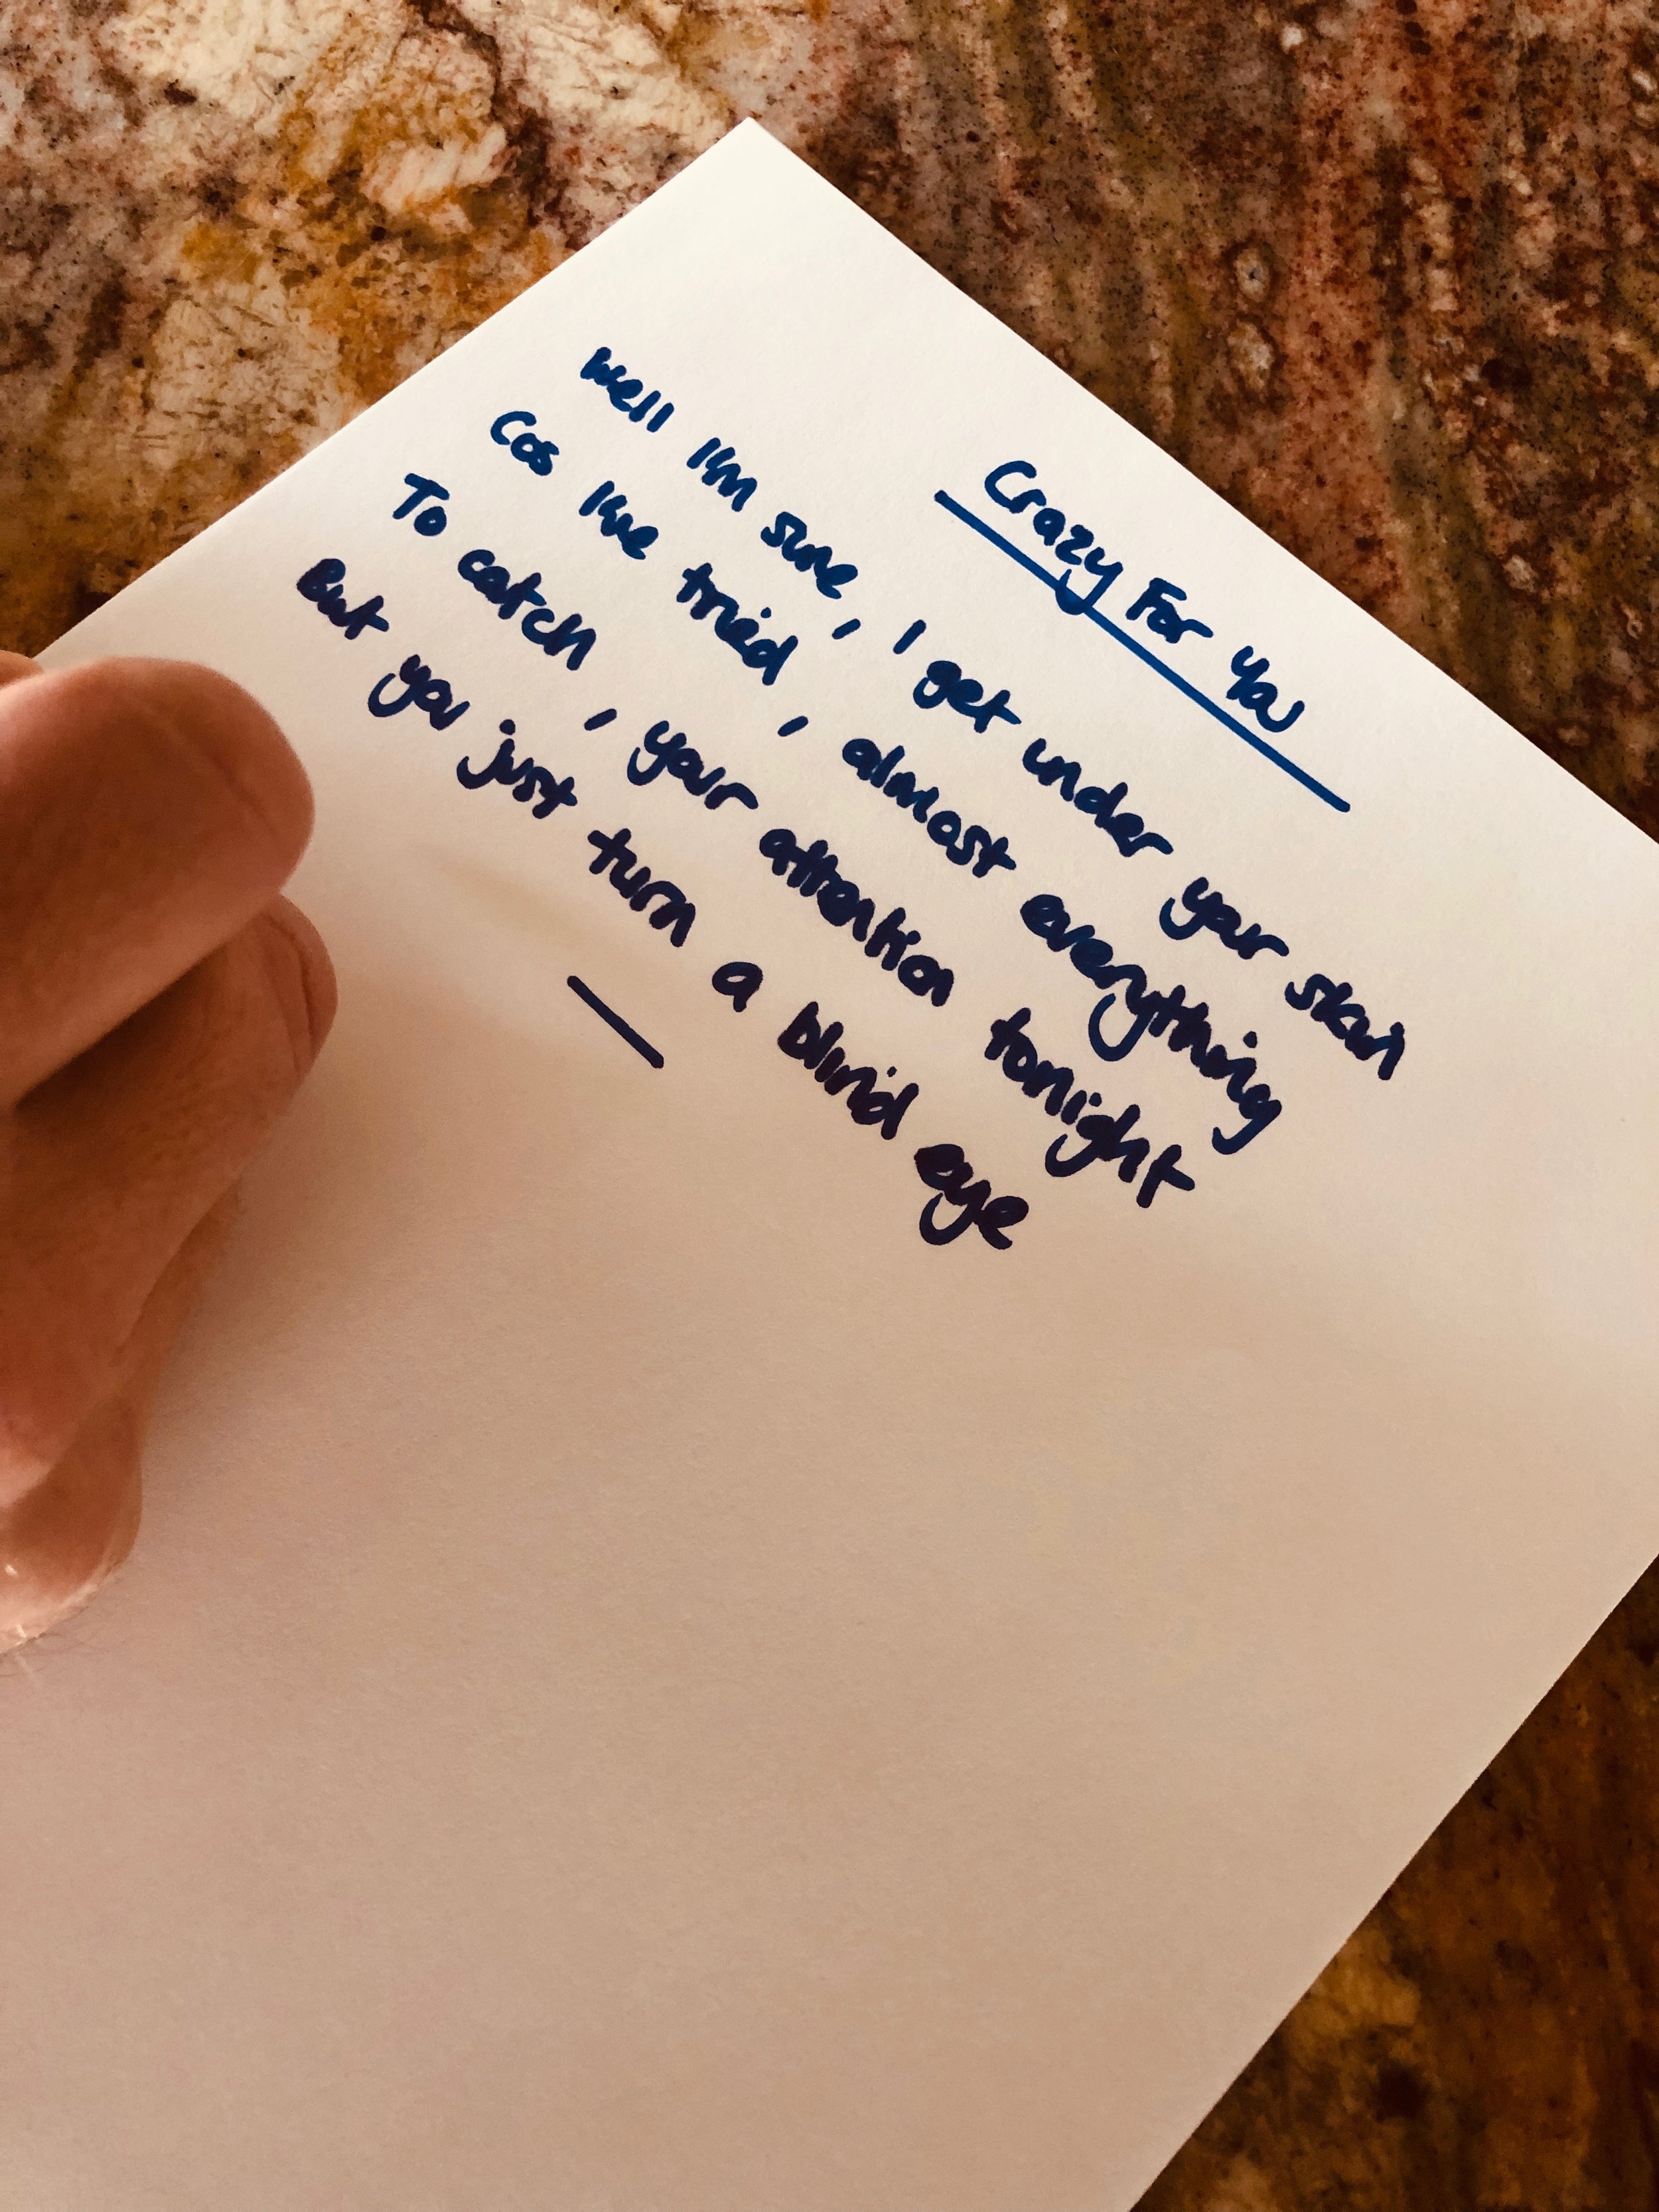 Crazy For You
Well I'm sure, I get under your skin
Cos I've tried, almost everything
To catch, your attention tonight
But you just turn a blind eye